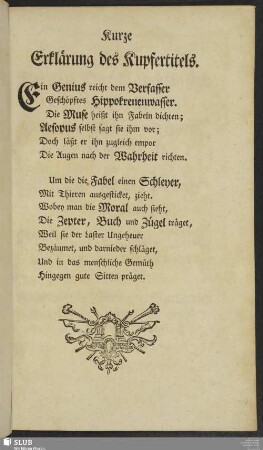 Kurze
Erklärung des Kupfertitels.
Ein Genius reicht dem Verfasser
Geschöpftes Hippokrenenwasser.
Die Muse heißt ihn Fabeln dichten;
Aesopus selbst sagt sie ihm vor;
Doch läßt er ihn zugleich empor
Die Augen nach der Wahrheit richten.
Um die die Fabel einen Schleyer,
Mit Thieren ausgesticket, zieht.
Wobey man die Moral auch sieht,
Die Zepter, Buch und Zügel träget,
Weil sie der Laster Ungeheuer
Bezäumet, und darnieder schläget,
Und in das menschliche Gemüth
Hingegen gute Sitten präget.
SLUB